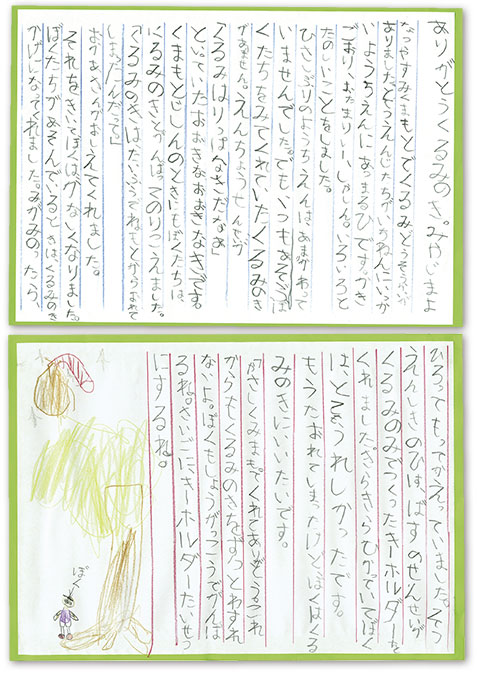 ありがとうくるみのき。みやじまよ
なつやすみくまもとでくるみどうそうかいが
ありましたどうえんじたちがいちねんにいっか
いようちえんにあつまるひです。かき
ごおり、おたまりレー、しゃしん。いろいろと
たのしいことをしました。
ひさしぶりのようちえんは、あまがわって
いませんでした。でもいつもあそぶぼ
くたちをみてくれていたくるみのき
がありません。えんちょうせんせいが
「くるみはりっぱなきだなあ」
といっていたおおきなおおきなきです。
くまもとじしんのときにもぼくたちは、
くるみのきとがんばってのりこえました。
「くるみのきは、たいふうでねもとからおれて
しまったんだって」
おかあさんがおしえてくれました。
それをきいてぼくはかなくなりました。
ぼくたちがあそんでいるときは、くるみのき
かげになってくれました。みがみのったら、
ひろってもってかえっていました。そつ
えんしきのひは、ばすのせんせいが
くるみのみでつくったキーホルダーを
くれました。きらきらひかっていてぼく
は、とってもうれしかったです。
もうたおれてしまったけどぼくはくる
みのきにいいたいです。
やさしくみまもってくれてありがとう。これ
からもくるみのきをずっとわすれ
ないよ。ぼくもしょうがっこうでがんば
るね。さいごにキーホルダーたいせつ
にするね。
ぼく